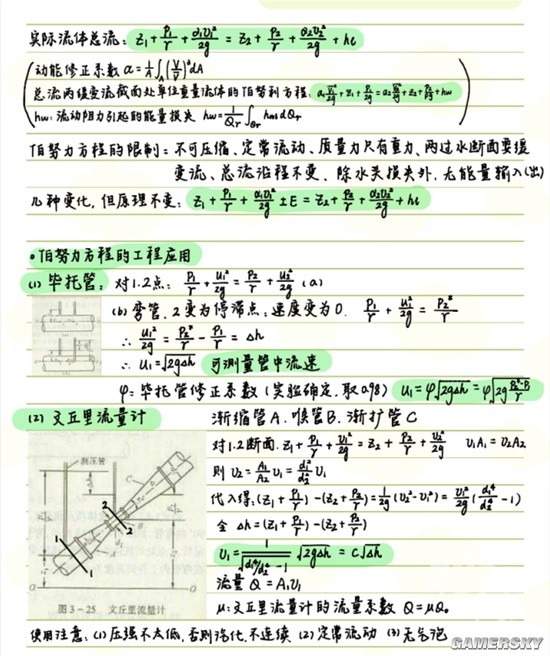 实际流体总流: z₁+P₁/γ+α₁U₁²/2g = z₂+P₂/γ+α₂U₂²/2g+hι
动能修正系数 α=1/A∫A(V/V)³dA
总流两缓变流截面处单位重量流体的伯努利方程: α₁V₁²/2g+z₁+P₁/γ=α₂V₂²/2g+z₂+P₂/γ+hw
hw: 流动阻力引起的能量损失
伯努力方程的限制: 不可压缩、定常流动、质量力只有重力、两过水断面要缓
变流、总流沿程不变、除水头损失外, 无能量输入(出)
几种变化, 但原理不变: z₁+P₁/γ+α₁U₁²/2g±E=z₂+P₂/γ+α₂U₂²/2g+hι
伯努力方程的工程应用
(1) 毕托管: 对1.2点: P₁/γ+U₁²/2g=P₂/γ+U₂²/2g (a)
(b) 弯管, 2变为停滞点, 速度变为0. P₁/γ+U₁²/2g=P₂*/γ
∴ U₁²/2g=P₂*/γ-P₁/γ=Δh
∴ U₁=√2gΔh 可测量管中流速
φ: 毕托管修正系数 (实验确定, 取0.98) U₁=φ√2gΔh=φ√2g
(2) 文丘里流量计 渐缩管A. 喉管B. 渐扩管C
对1.2断面. z₁+P₁/γ+U₁²/2g=z₂+P₂/γ+U₂²/2g U₁A₁=U₂A₂
则 U₂=A₁/A₂U₁=d₁²/d₂²U₁
代入得: (z₁+P₁/γ)-(z₂+P₂/γ)=1/2g(U₂²-U₁²)=U₁²/2g(d₁⁴/d₂⁴-1)
令 Δh=(z₁+P₁/γ)-(z₂+P₂/γ)
U₁=1/√d₁⁴/d₂⁴-1 √2gΔh=c√Δh
流量 Q=A₁U₁
μ: 文丘里流量计的流量系数 Q=μQ₀
测压管
1
2
1
2
O
O
图 3-25 文丘里流量计
使用注意: (1) 压强不太低, 否则汽化, 不连续 (2) 定常流动 (3) 无气泡
GAMERSKY